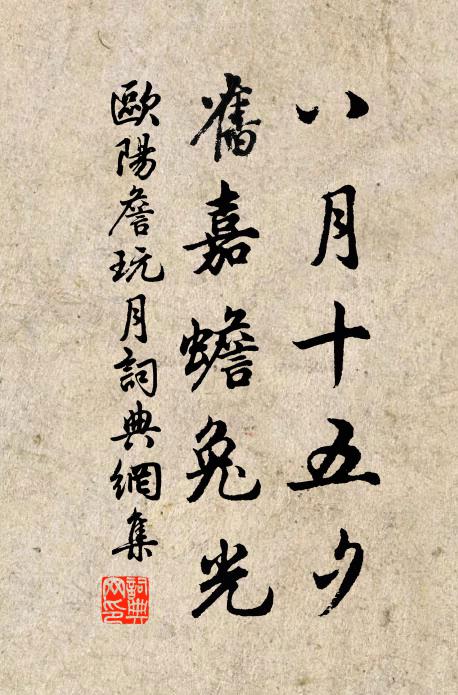 八月十五夕
舊嘉蟾兔光
歐陽詹玩月詞典網集